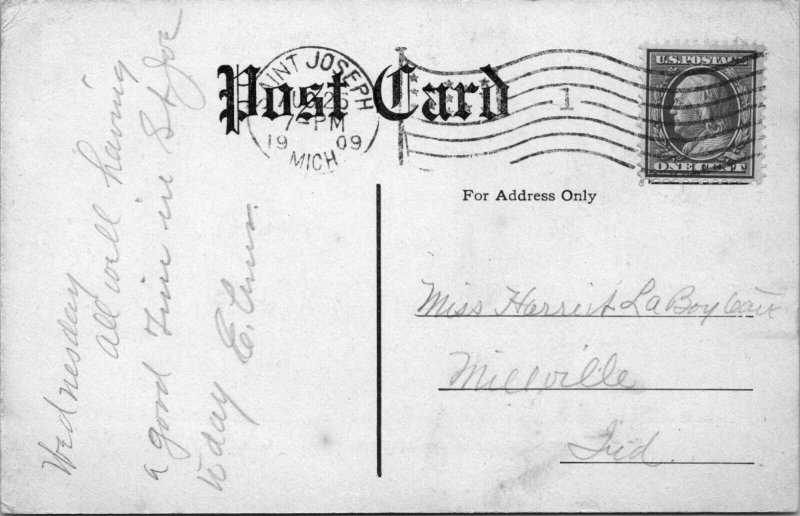 Post Card
SAINT JOSEPH
25
7-PM
1909
MICH
1
U.S. POSTAGE
ONE CENT
For Address Only
Wednesday
all well having
a good Time in St Joe
to day E.
Miss Harriet La Boyteaux
Millville
Ind.